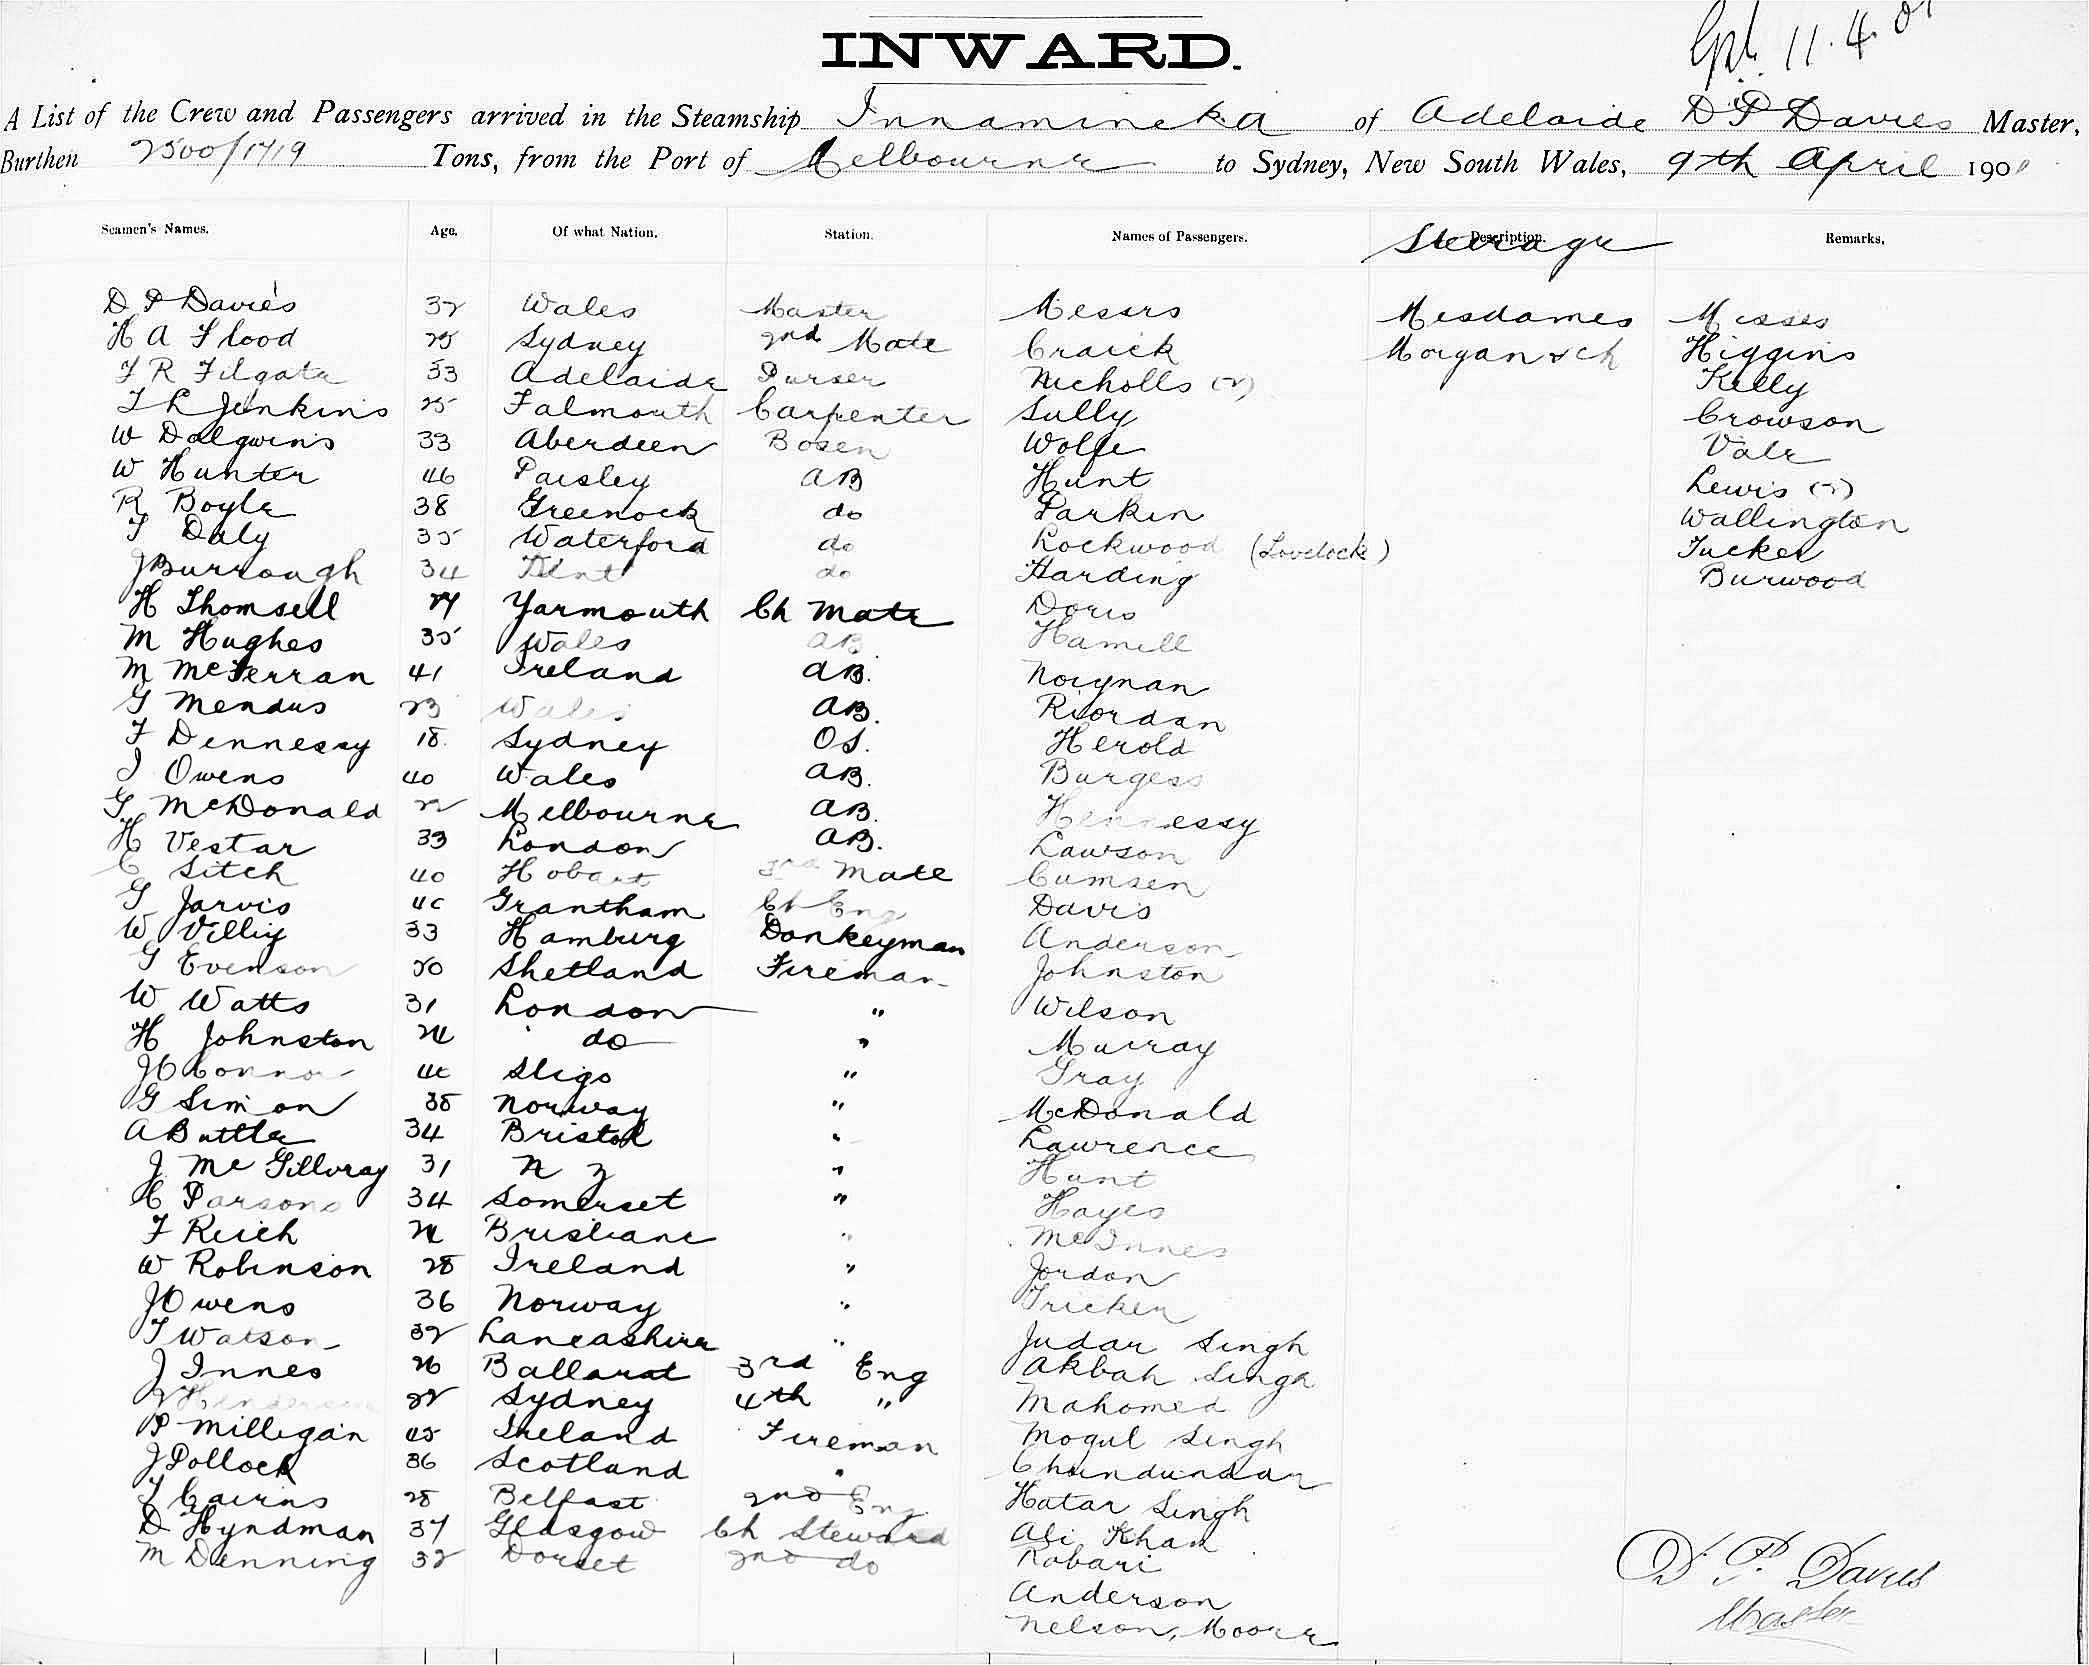 11.4.01
INWARD.
A List of the Crew and Passengers arrived in the Steamship Innamincka of Adelaide D P Davies Master,
Burthen 2500/1719 Tons, from the Port of Melbourne to Sydney, New South Wales, 9th April 1901
Seamen's Names. Age. Of what Nation. Station. Names of Passengers. Description. Steerage Remarks.
D P Davies 32 Wales Master Messrs Mesdames Misses
H A Flood 25 Sydney 2nd Mate Craick Morgan & ch Higgins
F R Filgate 33 Adelaide Purser Nicholls (2) Kelly
T L Jenkins 25 Falmouth Carpenter Sully Crowson
W Dalgwins 33 Aberdeen Bosen Wolfe Vale
W Hunter 46 Paisley AB Hunt Lewis (2)
R Boyle 38 Greenock do Larkin Wallington
T Daly 35 Waterford do Lockwood (Lovelock) Tucker
J Burrough 34 Kent do Harding Burwood
H Thomsell 27 Yarmouth Ch Mate Doris
M Hughes 35 Wales AB Hamill
M McFerran 41 Ireland AB. Noiynan
G Mendus 23 Wales AB. Riordan
F Dennessy 18. Sydney OS. Herold
J Owens 40 Wales AB. Burgess
G McDonald 22 Melbourne AB. Hennessy
H Vestar 33 London AB. Lawson
C Sitch 40 Hobart 3rd Mate Cumsen
G Jarvis 40 Grantham Ch Eng Davis
W Villig 33 Hamburg Donkeyman Anderson
G Evenson 20 Shetland Fireman Johnston
W Watts 31 London " Wilson
H Johnston 24 do " Murray
J O Connor 40 Sligo " Gray
G Simon 38 Norway " McDonald
A Buttler 34 Bristol " Lawrence
J McGillvray 31 N Z " Hunt
C Parsons 34 Somerset " Hayes
F Reich 24 Brisbane " McInnes
W Robinson 28 Ireland " Jordon
J Owens 36 Norway " Tricker
T Watson 32 Lancashire " Judar Singh
J Innes 26 Ballarat 3rd Eng Akbah Singh
J Henderson 22 Sydney 4th " Mahomed
P Milligan 45 Ireland Fireman Mogul Singh
J Pollock 36 Scotland " Chundundar
J Cairns 28 Belfast 2nd Eng. Hatar Singh
D Hyndman 37 Glasgow Ch Steward Ali Khan
M Denning 32 Dorset 2nd do Robari
Anderson
Nelson, Moore
D. P. Davies
Master